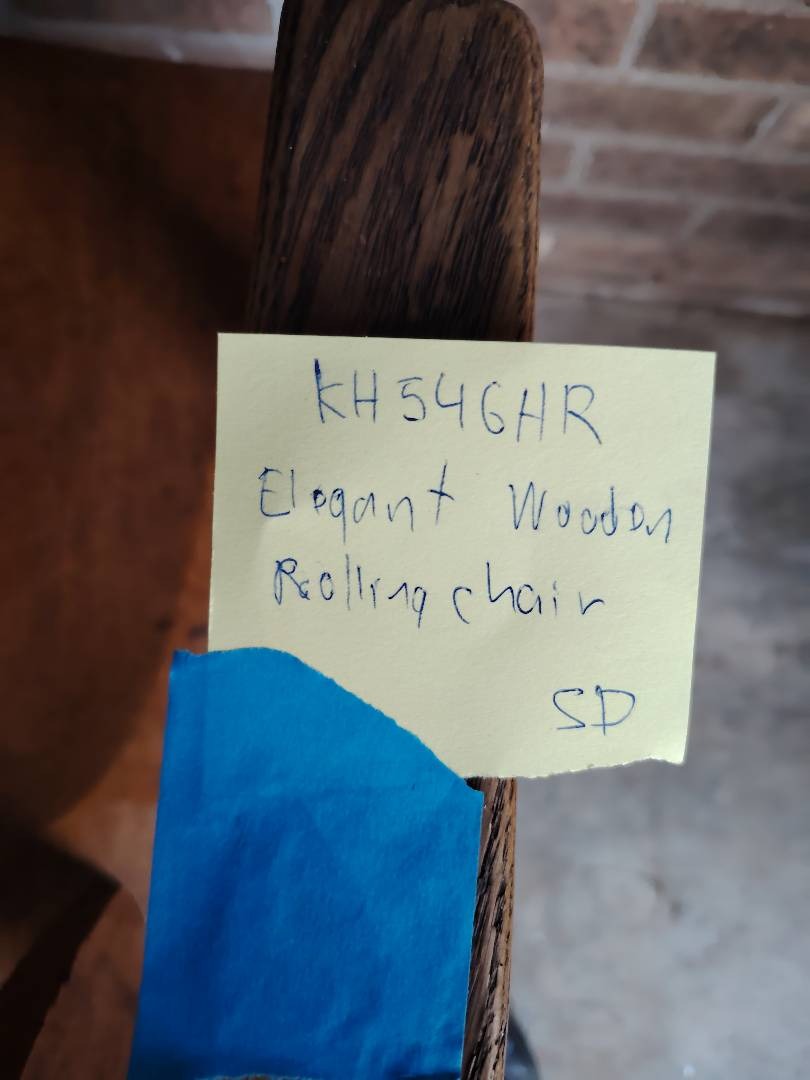 KH546HR
Elegant Wooden
Rolling chair
SD